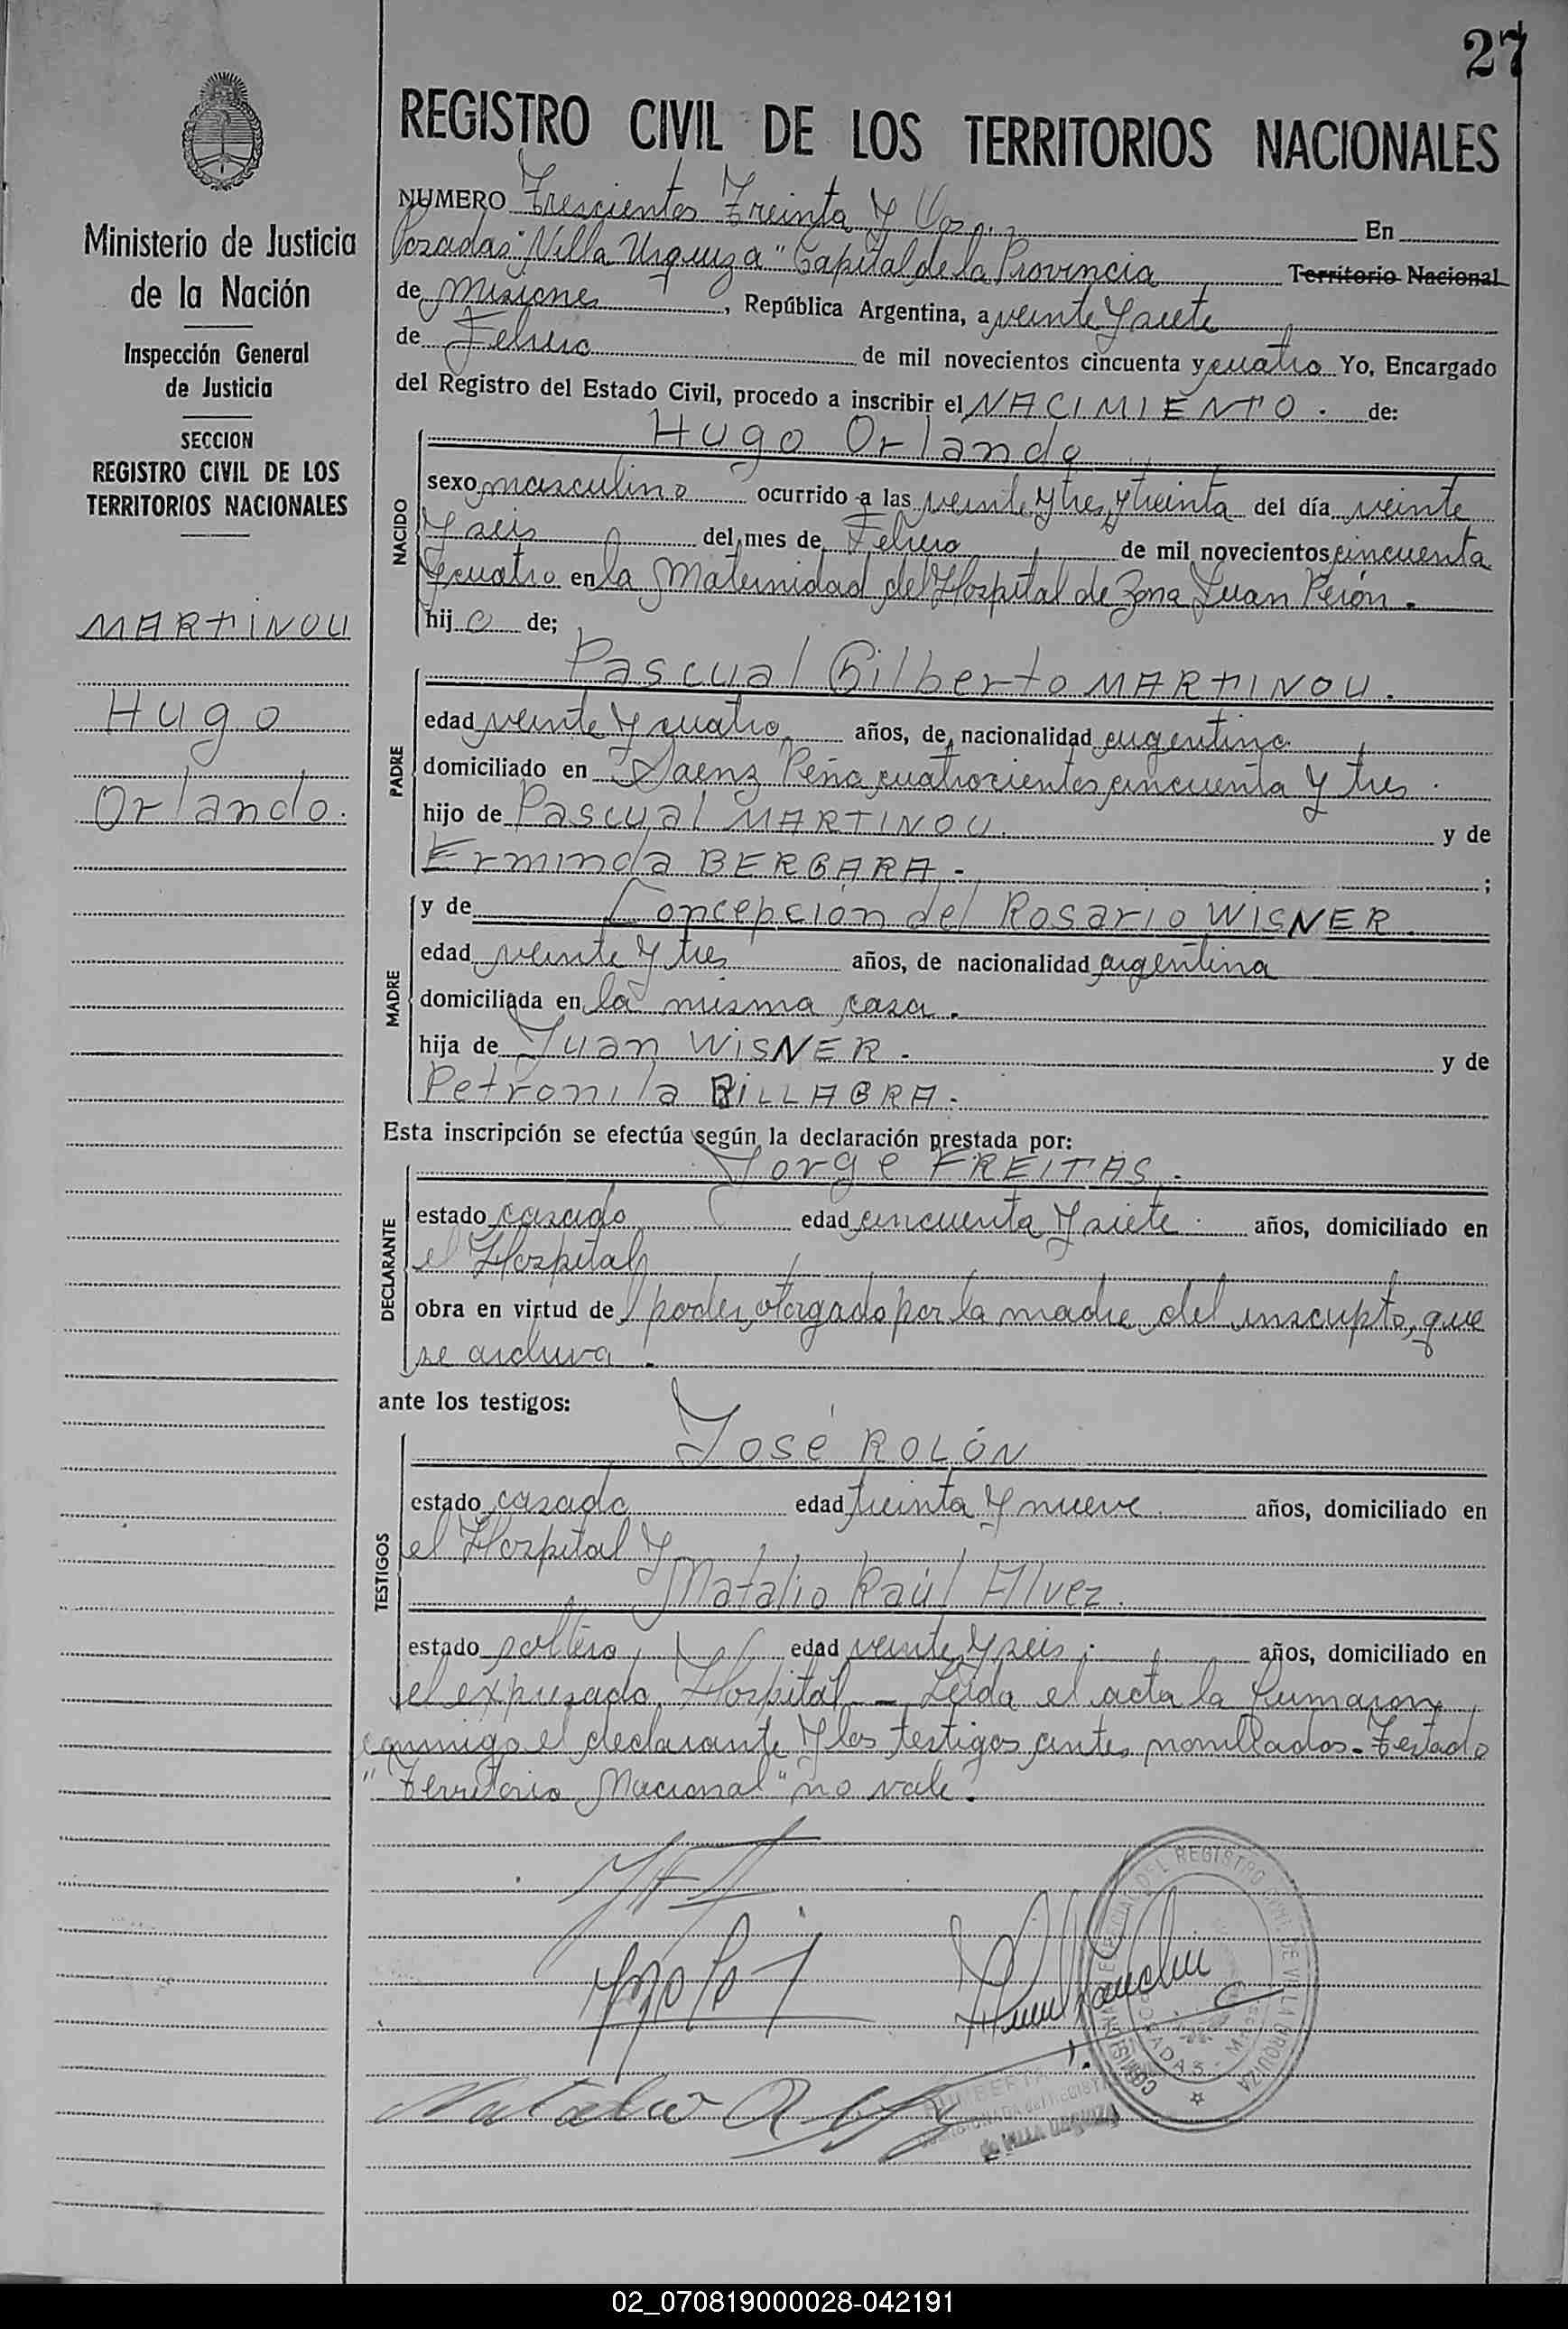 27
REGISTRO CIVIL DE LOS TERRITORIOS NACIONALES
Ministerio de Justicia
de la Nación
Inspección General
de Justicia
SECCION
REGISTRO CIVIL DE LOS
TERRITORIOS NACIONALES
MARTINOU
Hugo
Orlando.
NUMERO Trescientos Treinta y Dos.- En
Posadas "Villa Urquiza" Capital de la Provincia Territorio Nacional
de Misiones, República Argentina, a veinte y siete
de Febrero de mil novecientos cincuenta y cuatro Yo, Encargado
del Registro del Estado Civil, procedo a inscribir el NACIMIENTO. de:
NACIDO
Hugo Orlando
sexo masculino ocurrido a las veinte y tres y treinta del día veinte
y seis del mes de Febrero de mil novecientos cincuenta
y cuatro en la Maternidad del Hospital de Zona Juan Perón.
hijo de;
PADRE
Pascual Gilberto MARTINOU.
edad veinte y cuatro años, de nacionalidad argentino
domiciliado en Saenz Peña cuatrocientos cincuenta y tres.
hijo de Pascual MARTINOU. y de
Erminda BERGARA.- ;
MADRE
y de Concepción del Rosario WISNER.
edad veinte y tres años, de nacionalidad argentina
domiciliada en la misma casa.
hija de Juan WISNER.- y de
Petronila BILLAGRA.-
Esta inscripción se efectúa según la declaración prestada por:
DECLARANTE
Jorge FREITAS.-
estado casado edad cincuenta y siete. años, domiciliado en
el Hospital
obra en virtud del poder otorgado por la madre del inscripto, que
se archiva.
ante los testigos:
TESTIGOS
José ROLÓN
estado casado edad treinta y nueve años, domiciliado en
el Hospital y
Natalio Raúl Alvez.
estado soltero, edad veinte y seis. años, domiciliado en
el expresado Hospital.- Leída el acta la firmaron
conmigo el declarante y los testigos antes nombrados.- Testado
"Territorio Nacional" no vale.
REGISTRO CIVIL DE VILLA URQUIZA
POSADAS
de VILLA URQUIZA
02_070819000028-042191